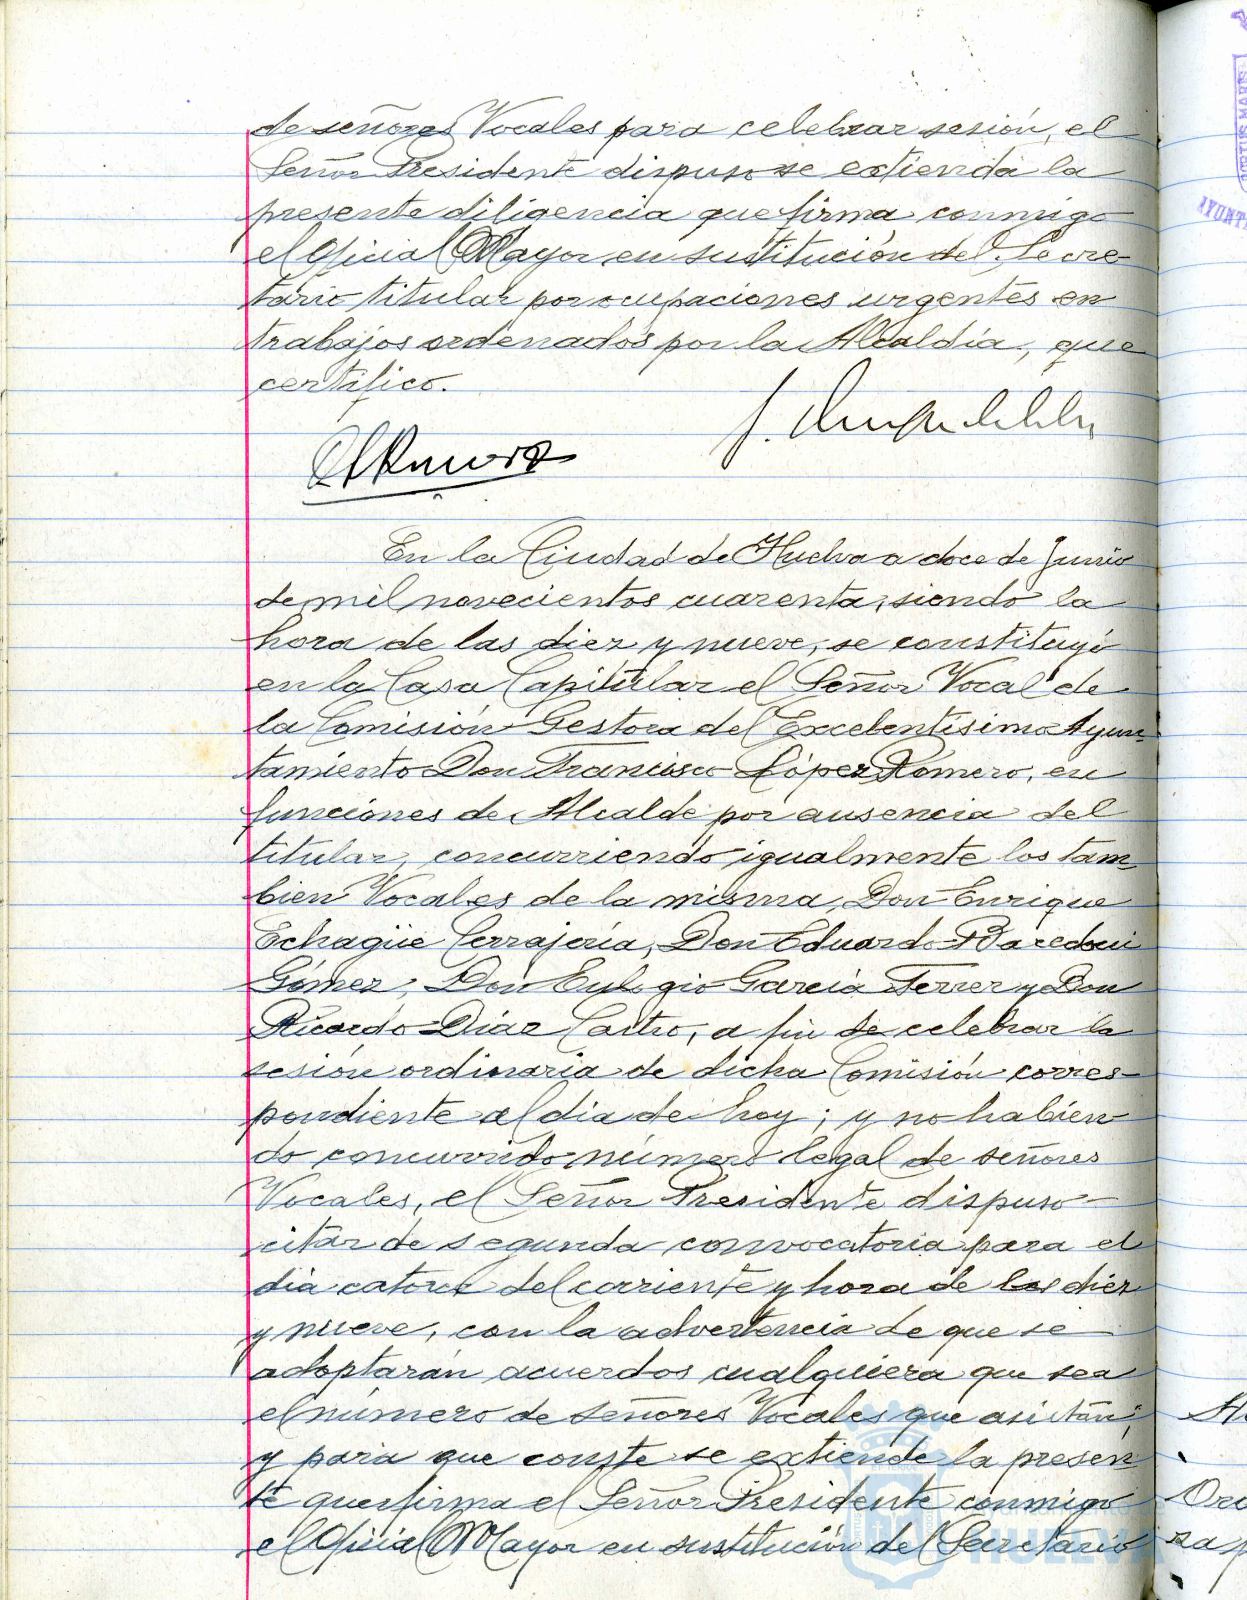 de señores Vocales para celebrar sesión, el
Señor Presidente dispuso se extienda la
presente diligencia que firma conmigo
el Oficial Mayor en sustitución del Secre-
tario titular por ocupaciones urgentes en
trabajos ordenados por la Alcaldía, que
certifico.
En la Ciudad de Huelva a doce de Junio
de mil novecientos cuarenta, siendo la
hora de las diez y nueve, se constituyó
en la Casa Capitular el Señor Vocal de
la Comisión Gestora del Excelentísimo Ayun-
tamiento Don Francisco López Romero, en
funciones de Alcalde por ausencia del
titular, concurriendo igualmente los tam-
bien Vocales de la misma, Don Enrique
Echagüe Cerrajería, Don Eduardo
Gómez, Don Eulogio García Ferrer y Don
Ricardo Díaz Castro, a fin de celebrar la
sesión ordinaria de dicha Comisión corres-
pondiente al día de hoy; y no habien-
do concurrido número legal de señores
Vocales, el Señor Presidente dispuso
citar de segunda convocatoria para el
día catorce del corriente y hora de las diez
y nueve, con la advertencia de que se
adoptarán acuerdos cualquiera que sea
el número de señores Vocales que asistan;
y para que conste se extiende la presen-
te que firma el Señor Presidente conmigo
el Oficial Mayor en sustitución del Secretario
Ayuntamiento de
HUELVA